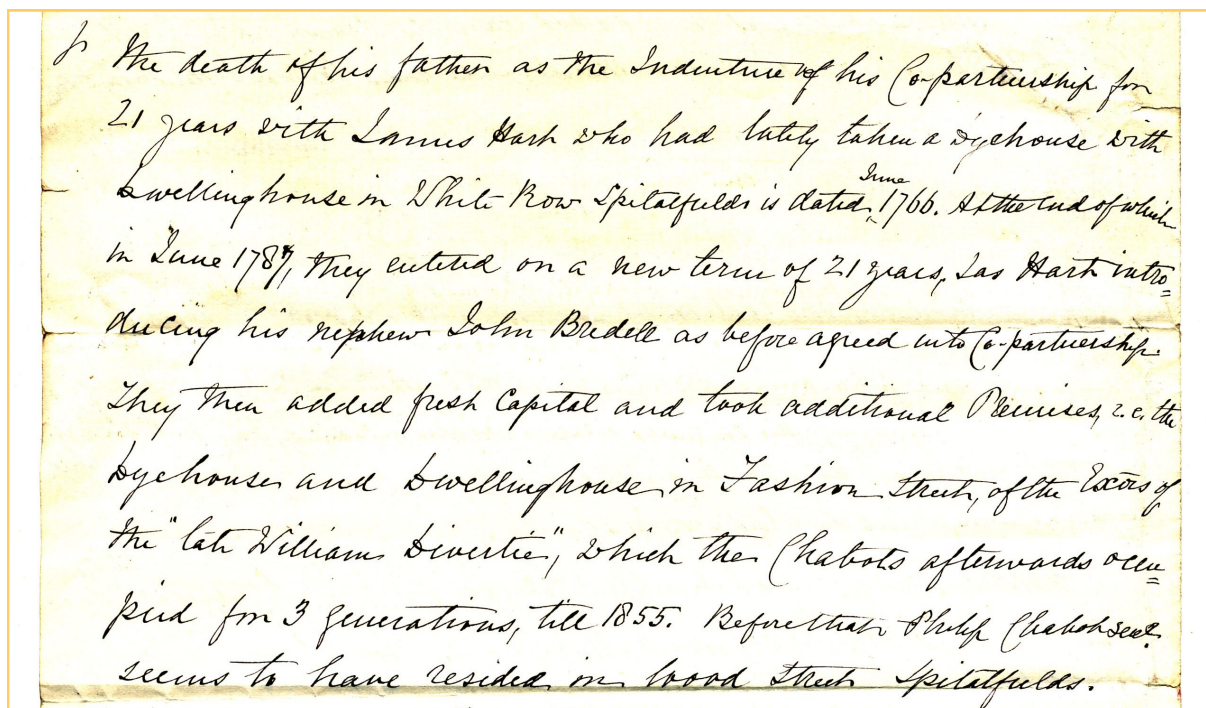 the death of his father as the Indenture of his Co-partnership for
21 years with James Hart who had lately taken a Dyehouse with
Dwellinghouse in White Row Spitalfields is dated June 1766. At the end of which
in June 1787, they entered on a new term of 21 years, Jas Hart intro=
ducing his nephew John Bredell as before agreed into Co-partnership.
They then added fresh Capital and took additional Premises, i.e. the
Dyehouse and Dwellinghouse in Fashion Street, of the Excors of
the "late William Divertie", which the Chabots afterwards occu=
pied for 3 generations, till 1855. Before that Philip Chabot senr.
seems to have resided in Wood Street Spitalfields.